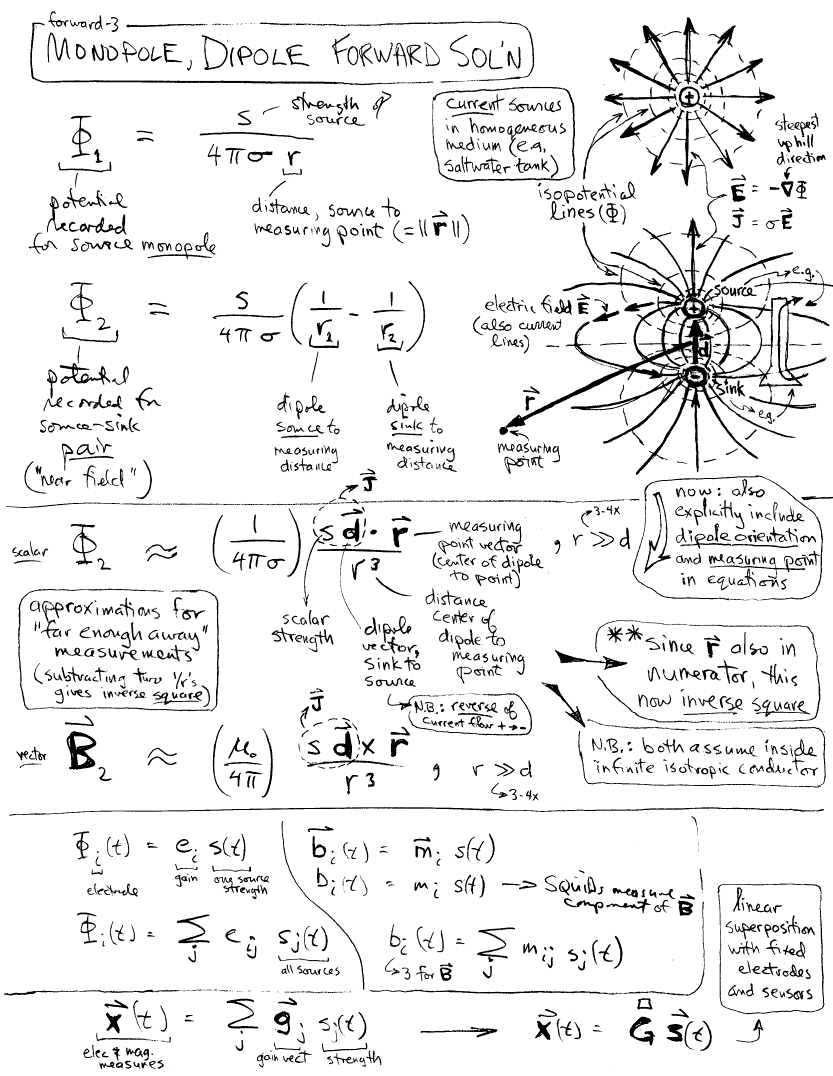 forward-3
MONOPOLE, DIPOLE FORWARD SOL'N
Φ₁ = s / (4πσ r)
strength
source
potential
recorded
for source monopole
distance, source to
measuring point (=‖r⃗‖)
current sources
in homogeneous
medium (e.g.,
saltwater tank)
isopotential
lines (Φ)
steepest
uphill
direction
E⃗ = -∇Φ
J⃗ = σE⃗
Φ₂ = s / (4πσ) (1/r₁ - 1/r₂)
potential
recorded for
source-sink
pair
("near field")
dipole
source to
measuring
distance
dipole
sink to
measuring
distance
electric field E⃗
(also current
lines)
+
source
e.g.
d⃗
-
sink
e.g.
r⃗
measuring
point
scalar Φ₂ ≈ (1 / 4πσ) s d⃗ · r⃗ / r³ , r ≫ d
J⃗
3-4x
measuring
point vector
(center of dipole
to point)
now: also
explicitly include
dipole orientation
and measuring point
in equations
scalar
strength
dipole
vector,
sink to
source
distance
center of
dipole to
measuring
point
approximations for
"far enough away"
measurements
(subtracting two 1/r's
gives inverse square)
**since r⃗ also in
numerator, this
now inverse square
N.B.: reverse of
current flow + → -
N.B.: both assume inside
infinite isotropic conductor
vector B⃗₂ ≈ (μ₀ / 4π) s d⃗ × r⃗ / r³ , r ≫ d
J⃗
3-4x
Φᵢ(t) = eᵢ s(t)
electrode
gain
one source
strength
Φᵢ(t) = Σⱼ eᵢⱼ sⱼ(t)
all sources
b⃗ᵢ(t) = m⃗ᵢ s(t)
bᵢ(t) = mᵢ s(t) → SQUIDs measure
component of B⃗
bᵢ(t) = Σⱼ mᵢⱼ sⱼ(t)
3 for B⃗
linear
superposition
with fixed
electrodes
and sensors
x⃗(t) = Σⱼ g⃗ⱼ sⱼ(t) → x⃗(t) = G s⃗(t)
elec & mag.
measures
gain vect
strength